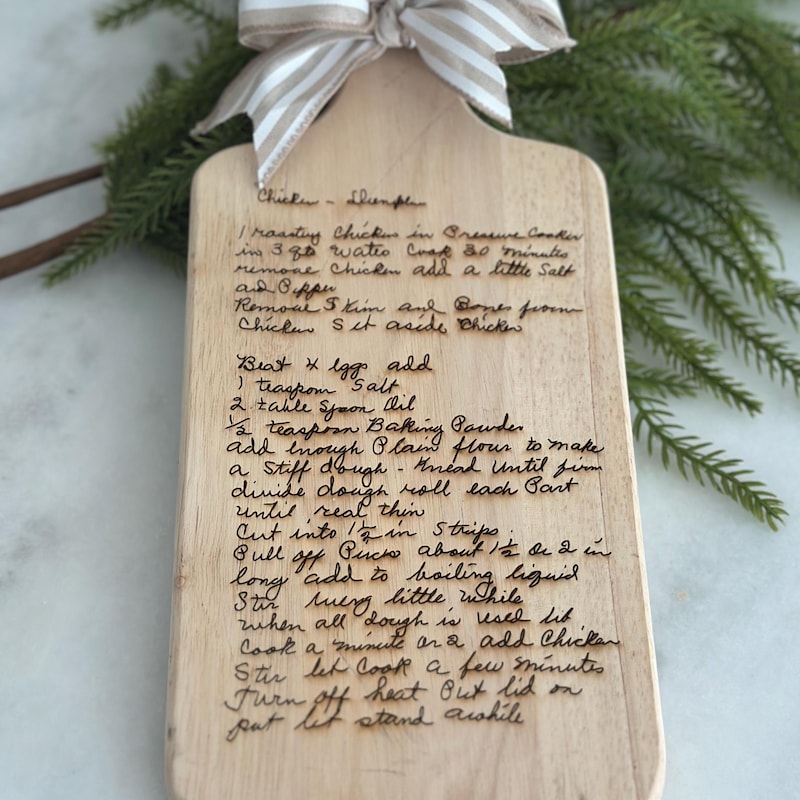 Chicken - Dumplin
1 roasting Chicken in Pressure Cooker
in 3 qts Water Cook 30 minutes
remove Chicken add a little Salt
and Pepper
Remove Skin and Bones from
Chicken Set aside Chicken
Beat 4 Eggs add
1 teaspoon Salt
2 table spoon Oil
1/2 teaspoon Baking Powder
add enough Plain flour to make
a Stiff dough - Knead Until firm
divide dough roll each Part
until real thin
Cut into 1 1/2 in Strips.
Pull off Pieces about 1 1/2 or 2 in
long add to boiling liquid
Stir every little while
when all dough is used let
Cook a minute or 2 add Chicken
Stir let Cook a few minutes
Turn off heat Put lid on
pot let stand awhile